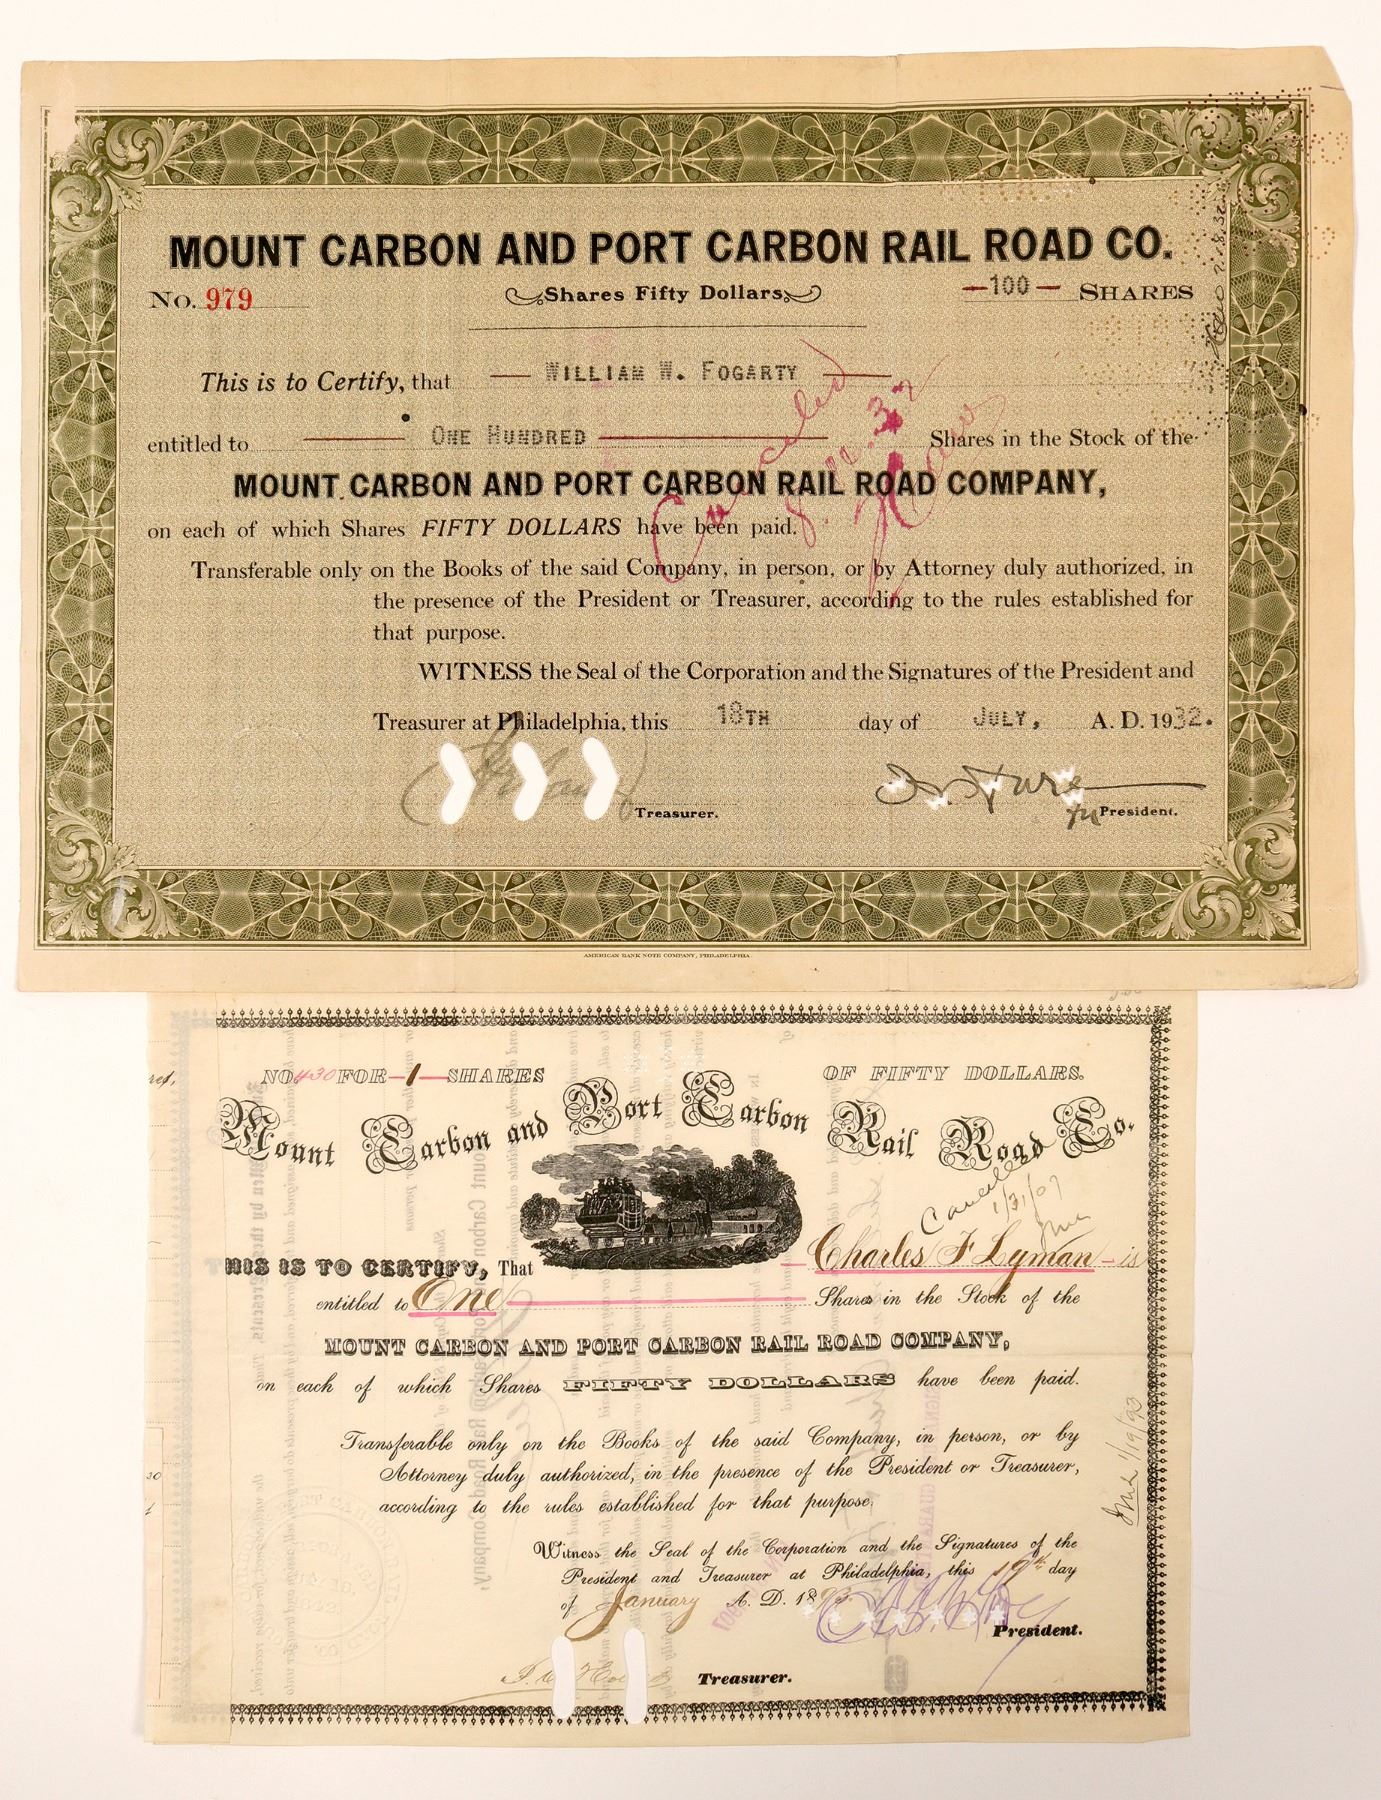 MOUNT CARBON AND PORT CARBON RAIL ROAD CO.
No. 979 Shares Fifty Dollars —100— SHARES
This is to Certify, that — WILLIAM W. FOGARTY —
entitled to — ONE HUNDRED — Shares in the Stock of the
MOUNT CARBON AND PORT CARBON RAIL ROAD COMPANY,
on each of which Shares FIFTY DOLLARS have been paid.
Cancelled
Transferable only on the Books of the said Company, in person, or by Attorney duly authorized, in
the presence of the President or Treasurer, according to the rules established for
that purpose.
WITNESS the Seal of the Corporation and the Signatures of the President and
Treasurer at Philadelphia, this 18TH day of JULY, A. D. 1932.
Treasurer.
President.
AMERICAN BANK NOTE COMPANY, PHILADELPHIA
NO 430 FOR —1— SHARES OF FIFTY DOLLARS.
Mount Carbon and Port Carbon Rail Road Co.
Cancelled
1/31/07
THIS IS TO CERTIFY, That — Charles F Lyman — is
entitled to One — Shares in the Stock of the
MOUNT CARBON AND PORT CARBON RAIL ROAD COMPANY,
on each of which Shares FIFTY DOLLARS have been paid.
Transferable only on the Books of the said Company, in person, or by
Attorney duly authorized, in the presence of the President or Treasurer,
according to the rules established for that purpose.
Witness the Seal of the Corporation and the Signatures of the
President and Treasurer at Philadelphia, this 19th day
of January A. D. 1893.
President.
Treasurer.
1/19/93